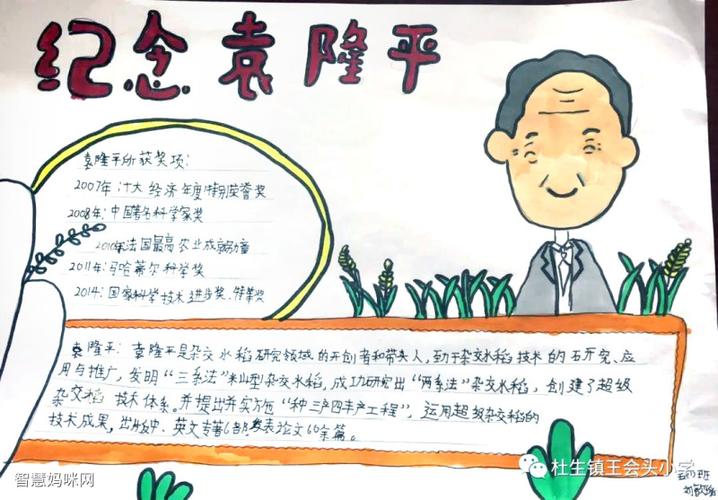 纪念袁隆平
袁隆平所获奖项：
2007年：十大经济年度特别荣誉奖
2008年：中国著名科学家奖
2010年法国最高农业成就勋章
2011年：马哈蒂尔科学奖
2014：国家科学技术进步奖、特等奖
袁隆平：袁隆平是杂交水稻研究领域的开创者和带头人，致力于杂交水稻技术的研究、应
用与推广，发明“三系法”籼型杂交水稻，成功研究出“两系法”杂交水稻，创建了超级
杂交稻技术体系。并提出并实施“种三产四丰产工程”，运用超级杂交稻的
技术成果，出版中、英文专著6部，发表论文60余篇。
杜生镇王会头小学
智慧妈咪网